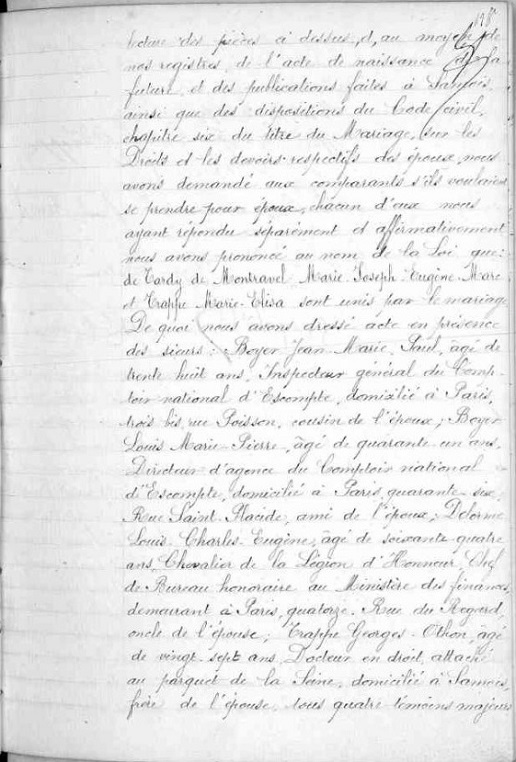 138
lecture des pièces ci dessus, et, au moyen de
nos registres, de l'acte de naissance de la
future, et des publications faites à Samois,
ainsi que des dispositions du Code civil,
chapitre six du titre du Mariage, sur les
Droits et les devoirs respectifs des époux, nous
avons demandé aux comparants s'ils voulaient
se prendre pour époux, chacun d'eux nous
ayant répondu séparément et affirmativement
nous avons prononcé au nom de la Loi que:
de Tardy de Montravel Marie Joseph Eugène Marc
et Trappe Marie Elisa sont unis par le mariage
De quoi nous avons dressé acte en présence
des sieurs: Boyer Jean Marie Paul, âgé de
trente huit ans, Inspecteur général du Comp-
toir national d'Escompte, domicilié à Paris,
trois bis, rue Poisson, cousin de l'époux; Boyer
Louis Marie Pierre, âgé de quarante un ans,
Directeur d'agence du Comptoir national
d'Escompte, domicilié à Paris, quarante six,
Rue Saint Placide, ami de l'époux; Delorme
Louis Charles Eugène, âgé de soixante quatre
ans, Chevalier de la Légion d'Honneur, Chef
de Bureau honoraire au Ministère des finances,
demeurant à Paris, quatorze, Rue du Regard,
oncle de l'épouse; Trappe Georges Othon, âgé
de vingt sept ans, Docteur en droit, attaché
au parquet de la Seine, domicilié à Samois,
frère de l'épouse, tous quatre témoins majeurs